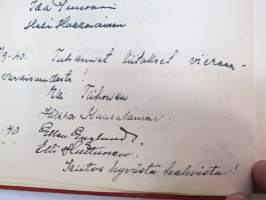 Ida
Heli Hakkarainen
/9-40. Tuhannet kiitokset vieraan-
varaisuudesta!
Tiihonen
Kaasalainen
-40 Ellen Englund
Elli Huttunen.
Kiitos hyvästä kahvista!